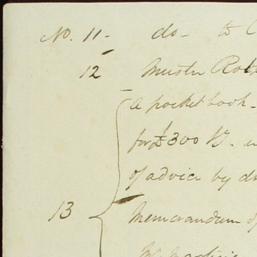 No. 11 - do - to
12 Muster Rol
A pocket book -
for £300
of advice by
13 Memorandum of